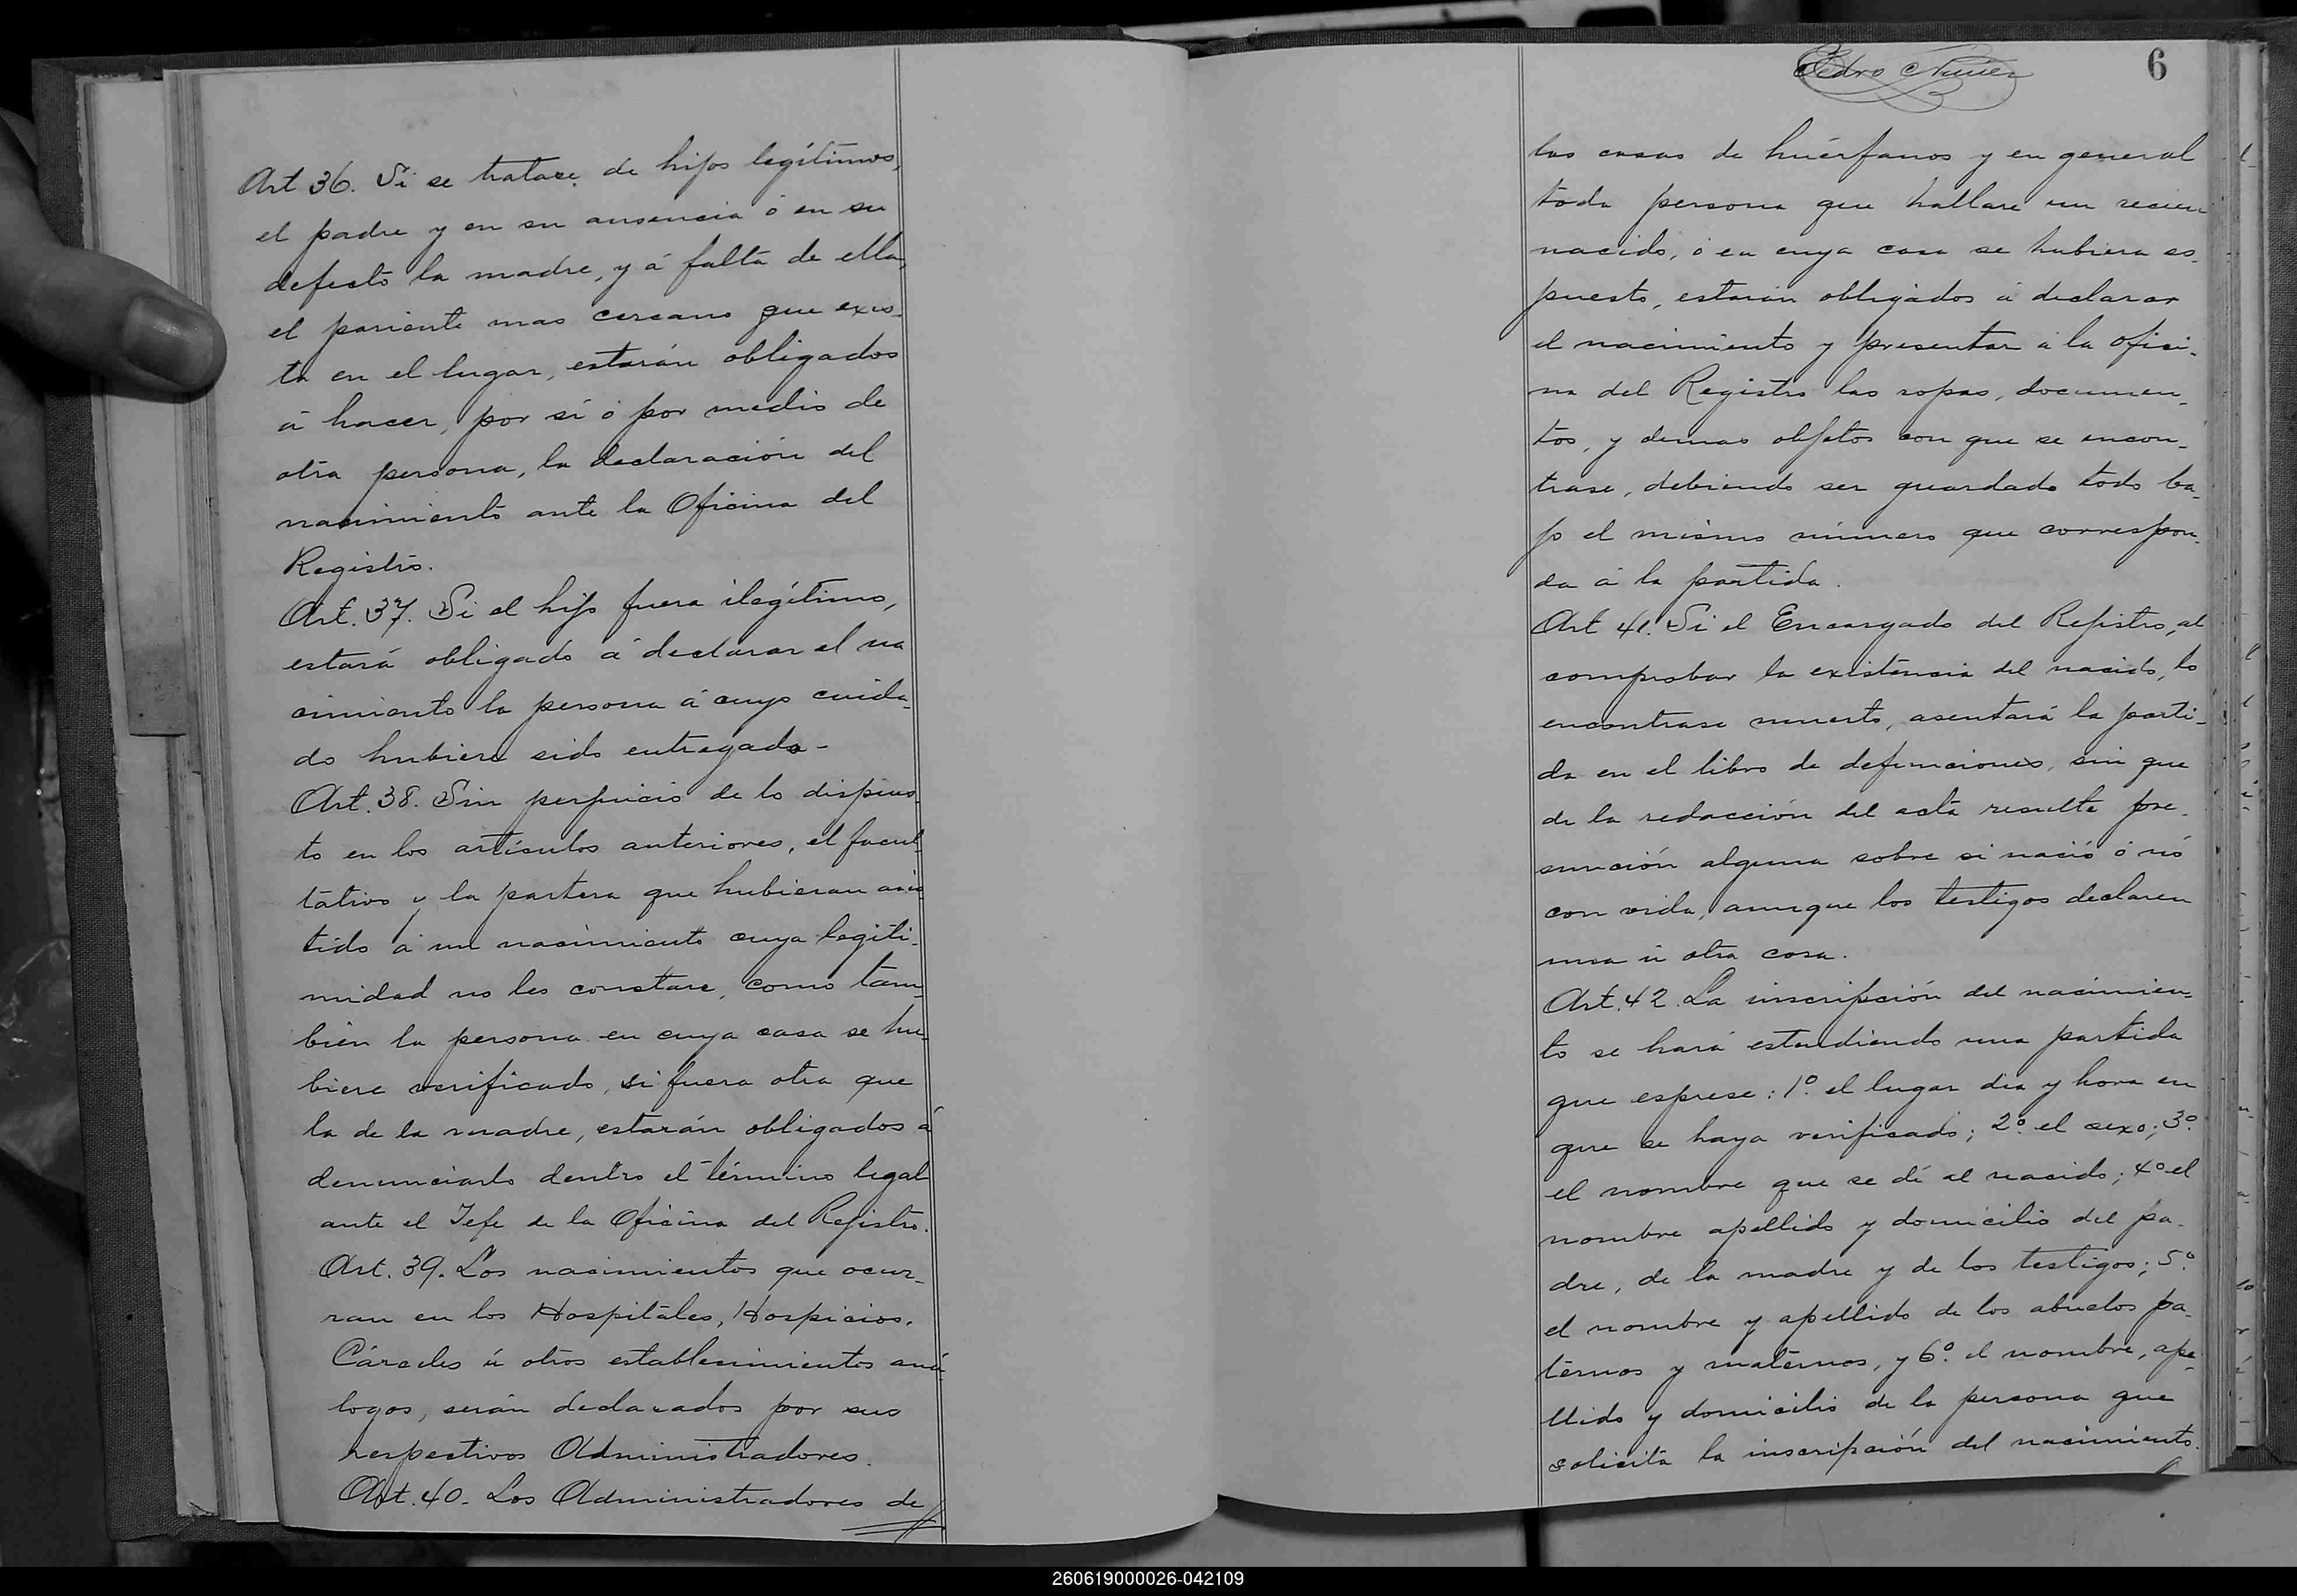 Art 36. Si se tratare de hijos legítimos,
el padre y en su ausencia ó en su
defecto la madre, y á falta de ella,
el pariente mas cercano que exis-
ta en el lugar, estarán obligados
á hacer, por sí ó por medio de
otra persona, la declaración del
nacimiento ante la Oficina del
Registro.
Art. 37. Si el hijo fuera ilegítimo,
estará obligado á declarar el na
cimiento la persona á cuyo cuida-
do hubiere sido entregado-
Art. 38. Sin perjuicio de lo dispues-
to en los artículos anteriores, el facul-
tativo y la partera que hubieran asis
tido á un nacimiento cuya legiti-
midad no les constare, como tam-
bién la persona en cuya casa se hu-
biere verificado, si fuera otra que
la de la madre, estarán obligados á
denunciarlo dentro el término legal
ante el Jefe de la Oficina del Rejistro.
Art. 39. Los nacimientos que ocur-
ran en los Hospitales, Hospicios,
Cárceles ú otros establecimientos aná-
logos, serán declarados por sus
respectivos Administradores.
Art. 40- Los Administradores de
Pedro Nuñez
6
las casas de huérfanos y en general
toda persona que hallare un recien
nacido, ó en cuya casa se hubiera es-
puesto, estarán obligados á declarar
el nacimiento y presentar á la ofici-
na del Registro las ropas, documen-
tos, y demas objetos con que se encon-
trase, debiendo ser guardado todo ba-
jo el mismo número que correspon-
da á la partida.
Art 41. Si el Encargado del Rejistro, al
comprobar la existencia del nacido, lo
encontrase muerto, asentará la parti-
da en el libro de defunciones, sin que
de la redacción del acta resulte pre-
sunción alguna sobre si nació ó nó
con vida, aunque los testigos declaren
una ú otra cosa.
Art. 42. La inscripción del nacimien-
to se hará estendiendo una partida
que esprese: 1º. el lugar dia y hora en
que se haya verificado; 2º. el sexo; 3º.
el nombre que se dé al nacido; 4º el
nombre apellido y domicilio del pa-
dre, de la madre y de los testigos; 5º.
el nombre y apellido de los abuelos pa-
ternos y maternos, y 6º. el nombre, ape-
llido y domicilio de la persona que
solicita la inscripción del nacimiento.
260619000026-042109